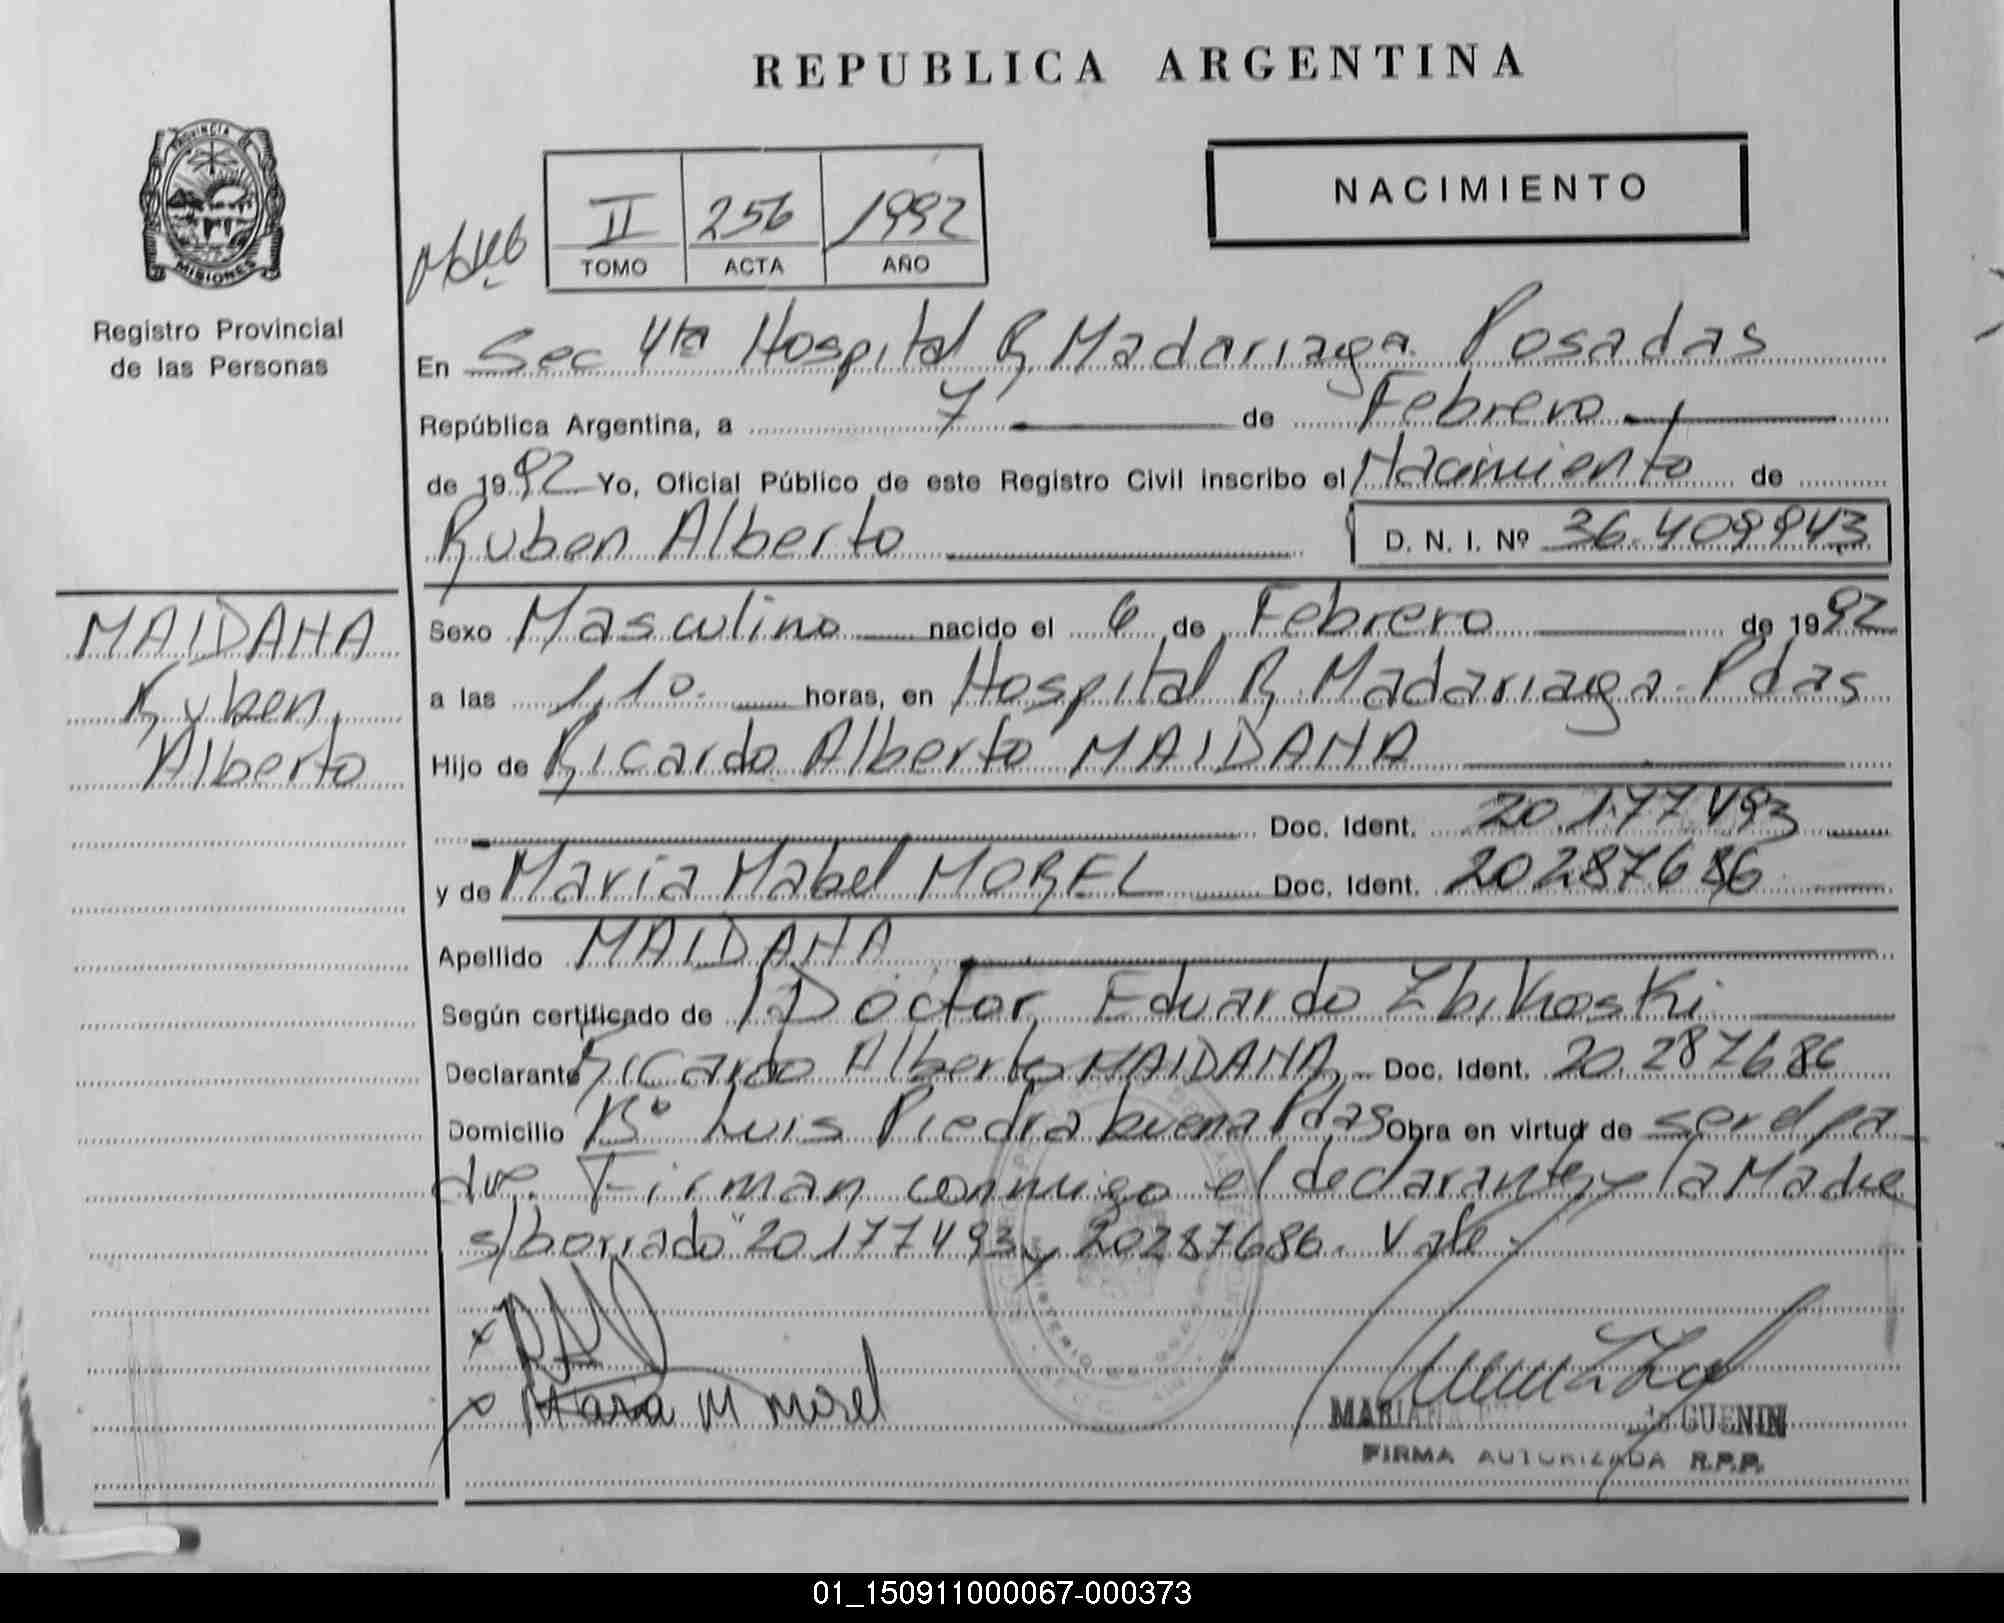 REPUBLICA ARGENTINA
PROVINCIA
MISIONES
Registro Provincial
de las Personas
II 256 1992
TOMO ACTA AÑO
NACIMIENTO
En Sec 4ta Hospital R. Madariaga. Posadas
República Argentina, a 7 de Febrero
de 1992 Yo, Oficial Público de este Registro Civil inscribo el Nacimiento de
Ruben Alberto D. N. I. Nº 36.409943
MAIDANA
Ruben
Alberto
Sexo Masculino nacido el 6 de Febrero de 1992
a las 1,10. horas, en Hospital R. Madariaga. Pdas
Hijo de Ricardo Alberto MAIDANA
Doc. Ident. 20.177493
y de Maria Mabel MOREL Doc. Ident. 20287686
Apellido MAIDANA
Según certificado de Doctor Eduardo Zbikoski
Declarante Ricardo Alberto MAIDANA Doc. Ident. 20.287686
Domicilio Bº Luis Piedra buena Pdas Obra en virtud de ser el pa
dre. Firman conmigo el declarante y la Madre
s/borrado "20177493 y 20287686. Vale.
x
x Maria M Morel
MARIANA GUENIN
FIRMA AUTORIZADA R.P.P.
01_150911000067-000373